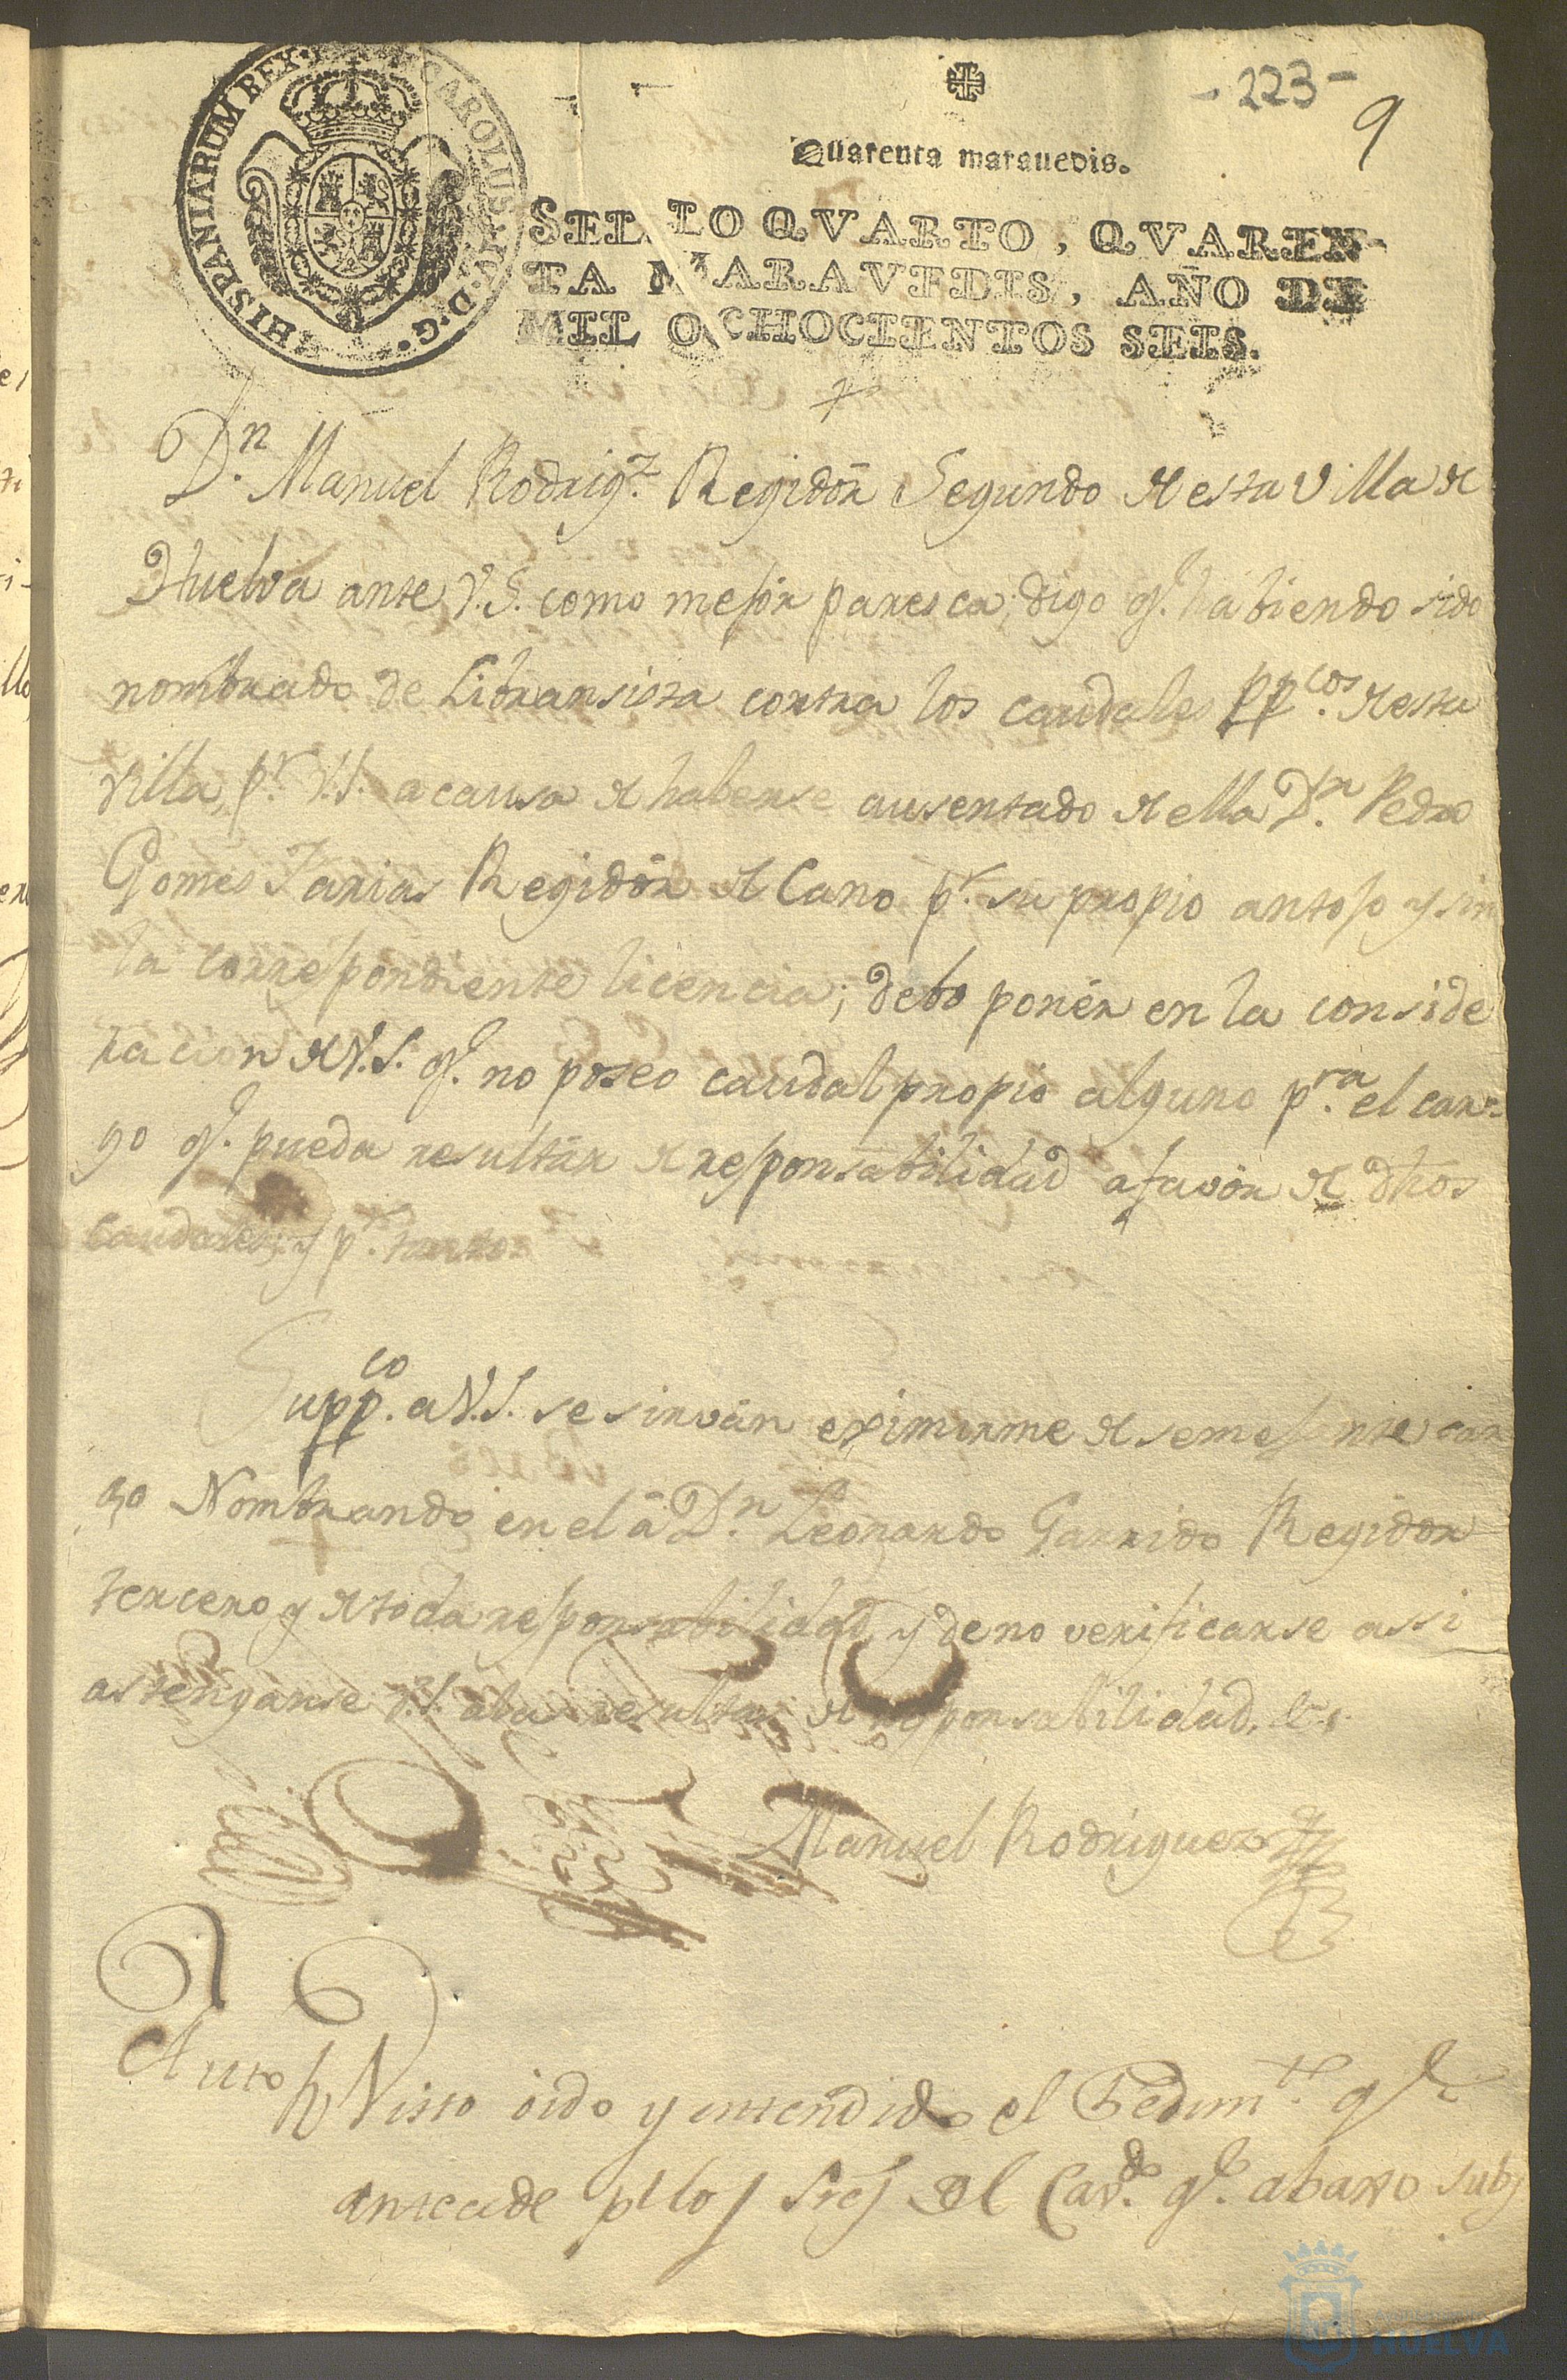 HISPANIARUM REX. CAROLUS IV. D. G.
- 223 -
9
Quarenta marauedis.
SELLO QVARTO, QVAREN-
TA MARAVEDIS, AÑO DE
MIL OCHOCIENTOS SEIS.
Dn. Manuel Rodrigz. Regidor Segundo de esta Villa de
Huelva ante V.S. como mejor paresca; digo q.e habiendo sido
nombrado de Libransista contra los caudales ppcos. de esta
Villa, pr. V.S. a causa de haberse ausentado de ella Dn. Pedro
Gomes Farias Regidor de Cano pr. su propio antojo y sin
la correspondiente licencia; debo poner en la conside
racion de V.S. q.e no poseo caudal propio alguno pra. el car-
go q.e pueda resultar de responsabilidad a favor de dhos
caudales; y pr. tanto
Suppco. a V.S. se sirvan eximirme de semejante car
go Nombrando en el a Dn. Leonardo Garrido Regidor
tercero y de toda responsabilidad, y de no verificarse assi
astenganse V.S. a la resulta de responsabilidad, &a.
Manuel Rodriguez
Auto Visto oido y entendido el Pedimto. qe
antecede pr los Sres del Cavdo. qe. abaxo subs
HUELVA